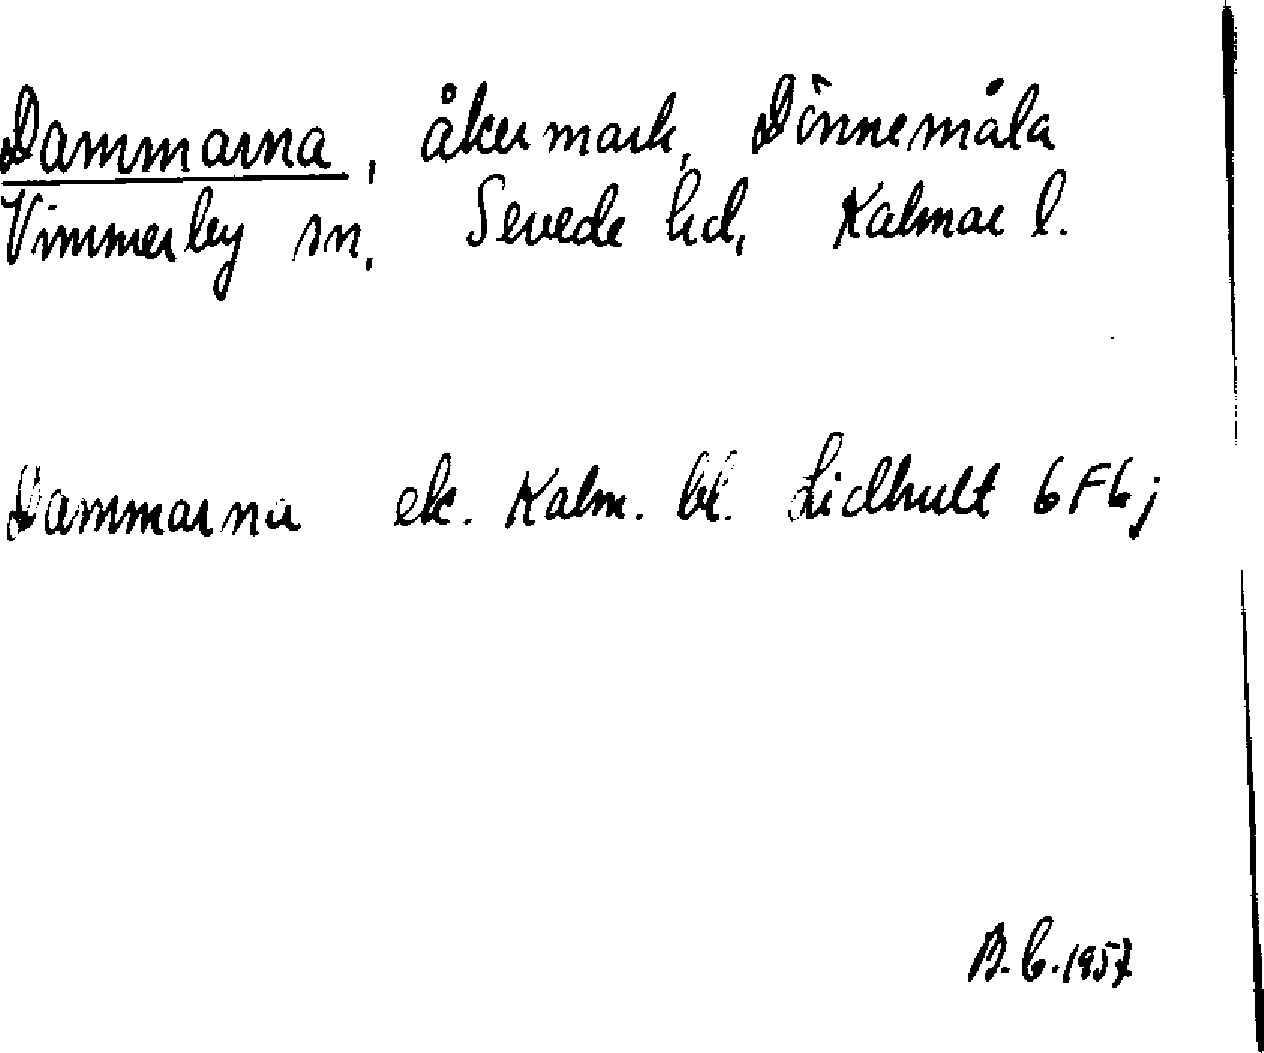 Dammarna, åkermark, Dönnemåla
Vimmerby sn, Sevede hd, Kalmar l.
Dammarna ek. Kalm. bl. Lidhult 6F6j
B. C. 1957